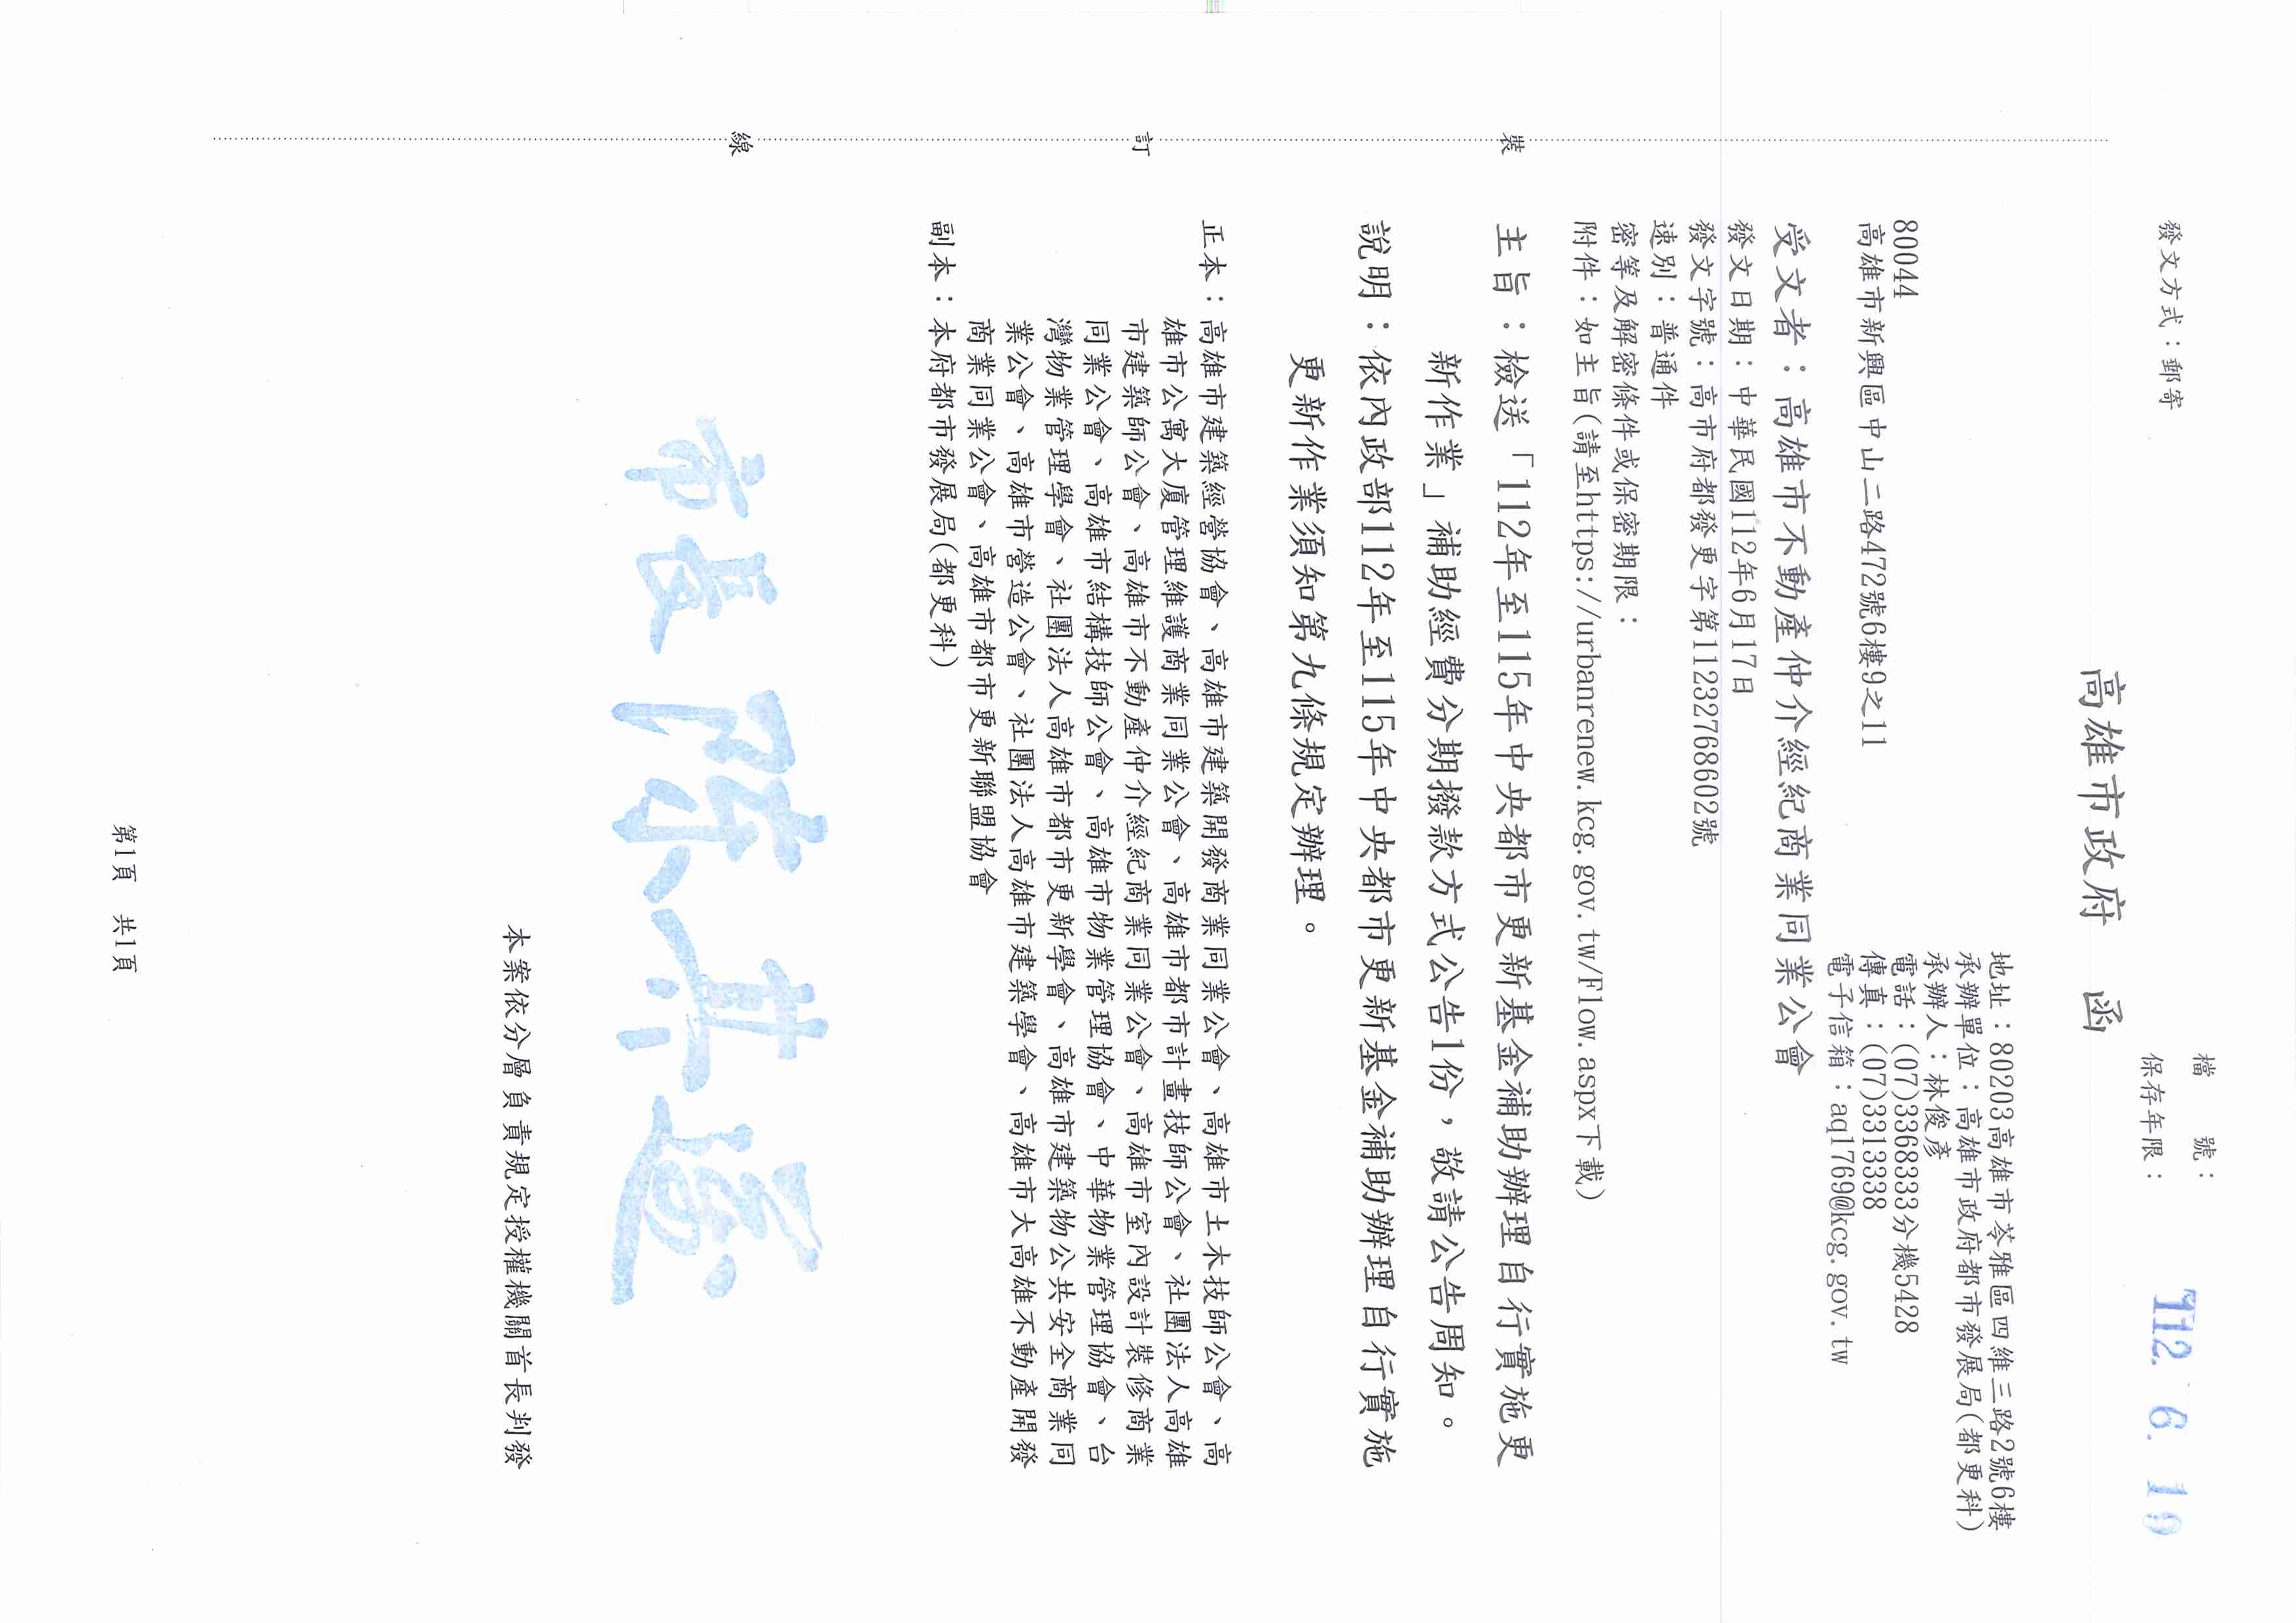 檔　　號：
保存年限：
112. 6. 19
發文方式：郵寄
高雄市政府　函
地址：80203高雄市苓雅區四維三路2號6樓
承辦單位：高雄市政府都市發展局(都更科)
承辦人：林俊彥
電話：(07)3368333分機5428
傳真：(07)3313338
電子信箱：aq1769@kcg.gov.tw
80044
高雄市新興區中山二路472號6樓9之11
受文者：高雄市不動產仲介經紀商業同業公會
發文日期：中華民國112年6月17日
發文字號：高市府都發更字第11232768602號
速別：普通件
密等及解密條件或保密期限：
附件：如主旨(請至https://urbanrenew.kcg.gov.tw/Flow.aspx下載)
主旨：檢送「112年至115年中央都市更新基金補助辦理自行實施更
新作業」補助經費分期撥款方式公告1份，敬請公告周知。
說明：依內政部112年至115年中央都市更新基金補助辦理自行實施
更新作業須知第九條規定辦理。
正本：高雄市建築經營協會、高雄市建築開發商業同業公會、高雄市土木技師公會、高
雄市公寓大廈管理維護商業同業公會、高雄市都市計畫技師公會、社團法人高雄
市建築師公會、高雄市不動產仲介經紀商業同業公會、高雄市室內設計裝修商業
同業公會、高雄市結構技師公會、高雄市物業管理協會、中華物業管理協會、台
灣物業管理學會、社團法人高雄市都市更新學會、高雄市建築物公共安全商業同
業公會、高雄市營造公會、社團法人高雄市建築學會、高雄市大高雄不動產開發
商業同業公會、高雄市都市更新聯盟協會
副本：本府都市發展局(都更科)
裝
訂
線
市長 陳其邁
本案依分層負責規定授權機關首長判發
第1頁　共1頁